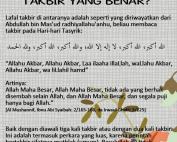 TAKBIR YANG BENAR?
Lafal takbir di antaranya adalah seperti yang diriwayatkan dari
Abdullah bin Mas'ud radhiyallahu'anhu, beliau membaca
takbir pada Hari-hari Tasyriq:
الله أكبر الله أكبر لا إله إلا الله والله أكبر الله أكبر ولله الحمد
"Allahu Akbar, Allahu Akbar, Laa ilaaha illallah, wallahu Akbar,
Allahu Akbar, wa lillahil hamd"
Artinya:
Allah Maha Besar, Allah Maha Besar, tidak ada yang berhak
disembah selain Allah, dan Allah Maha Besar, dan segala puji
hanya bagi Allah."
Baik dengan diawali tiga kali takbir atau dengan dua kali takbir.
Ini adalah termasuk perkara yang luas, karena